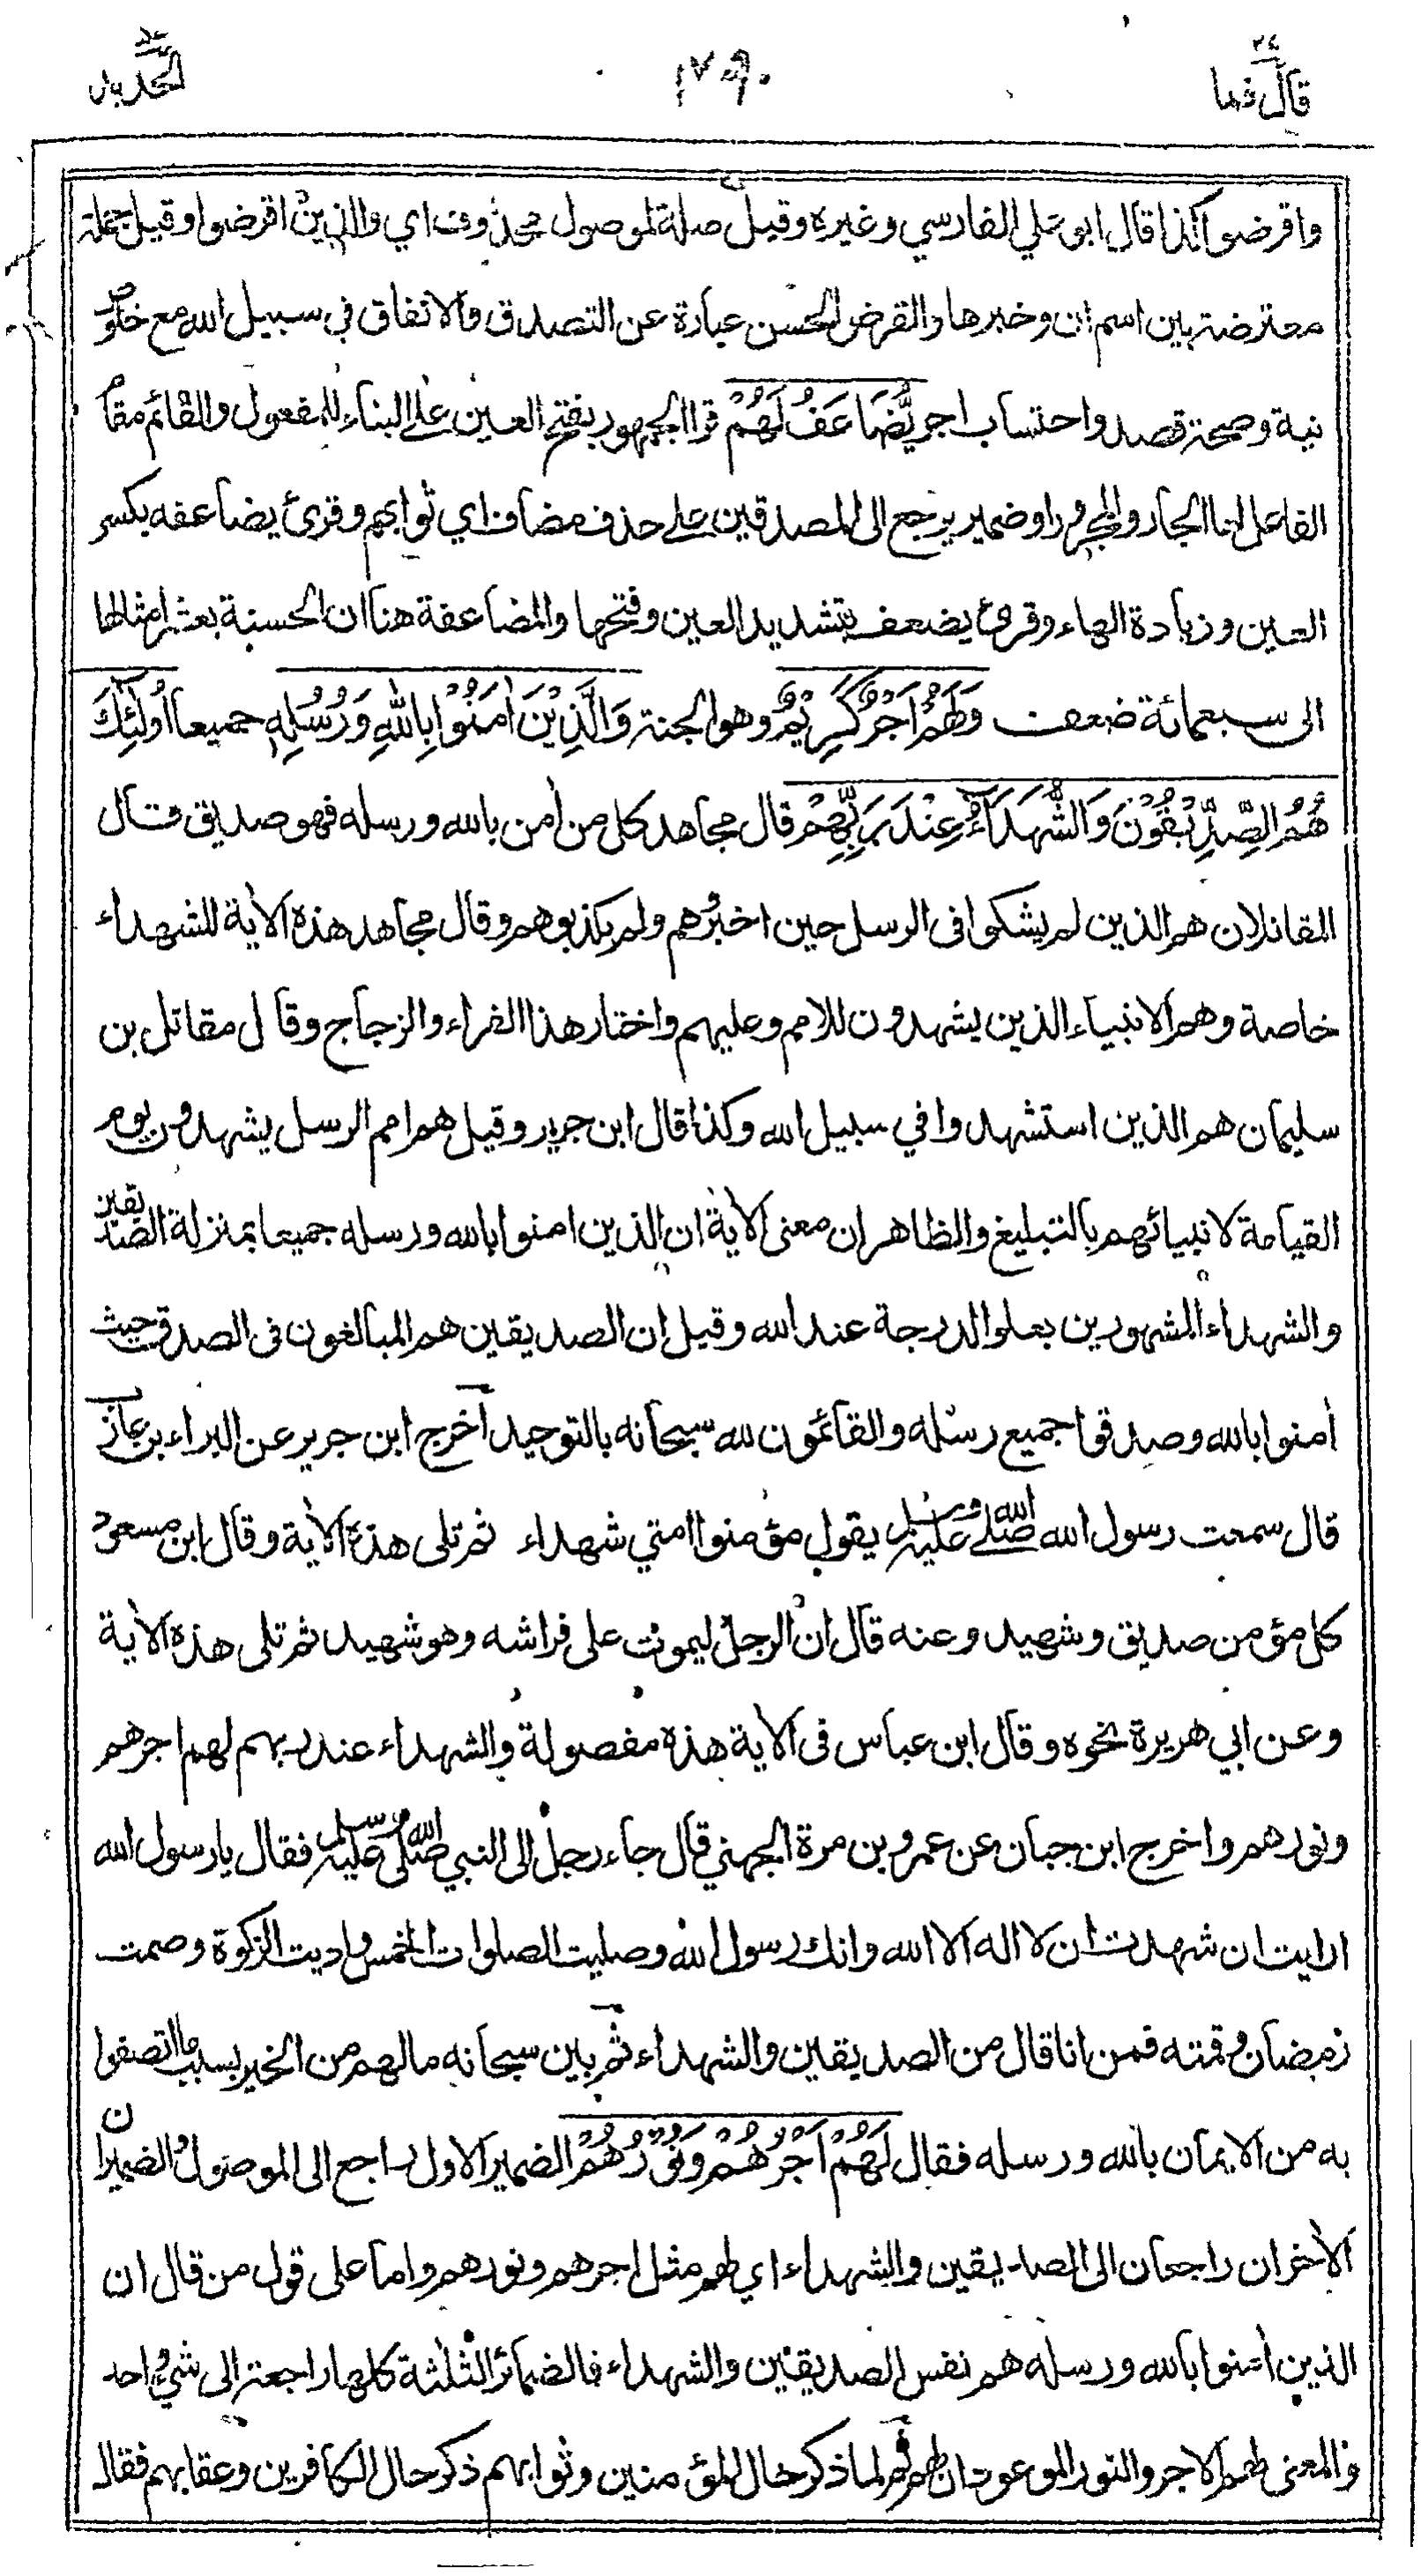 قال فما ٢٧
١٧٩٠
الحديد ٥٧
واقرضوا كذا قال ابو علي الفارسي وغيره وقيل صلة لموصول محذوف اي والذين اقرضوا وقيل جملة
معترضة بين اسم ان وخبرها والقرض الحسن عبارة عن التصدق والانفاق في سبيل الله مع خلوص
نية وصحة قصد واحتساب اجر يُّضَاعَفُ لَهُمْ قرأ الجمهور بفتح العين على البناء للمفعول والقائم مقام
الفاعل اما الجار والمجرور او ضمير يرجع الى المصدقين على حذف مضاف اي ثوابهم وقرئ يضاعفه بكسر
العين وزيادة الهاء وقرئ يضعف بتشديد العين وفتحها والمضاعفة هنا ان الحسنة بعشر امثالها
الى سبعمائة ضعف وَلَهُمْ اَجْرٌ كَرِيْمٌ وهو الجنة وَالَّذِيْنَ اٰمَنُوْا بِاللّٰهِ وَرُسُلِهٖ جميعا اُولٰٓئِكَ
هُمُ الصِّدِّيْقُوْنَ وَالشُّهَدَآءُ عِنْدَ رَبِّهِمْ قال مجاهد كل من اٰمن بالله ورسله فهو صديق قال
المقاتلان هم الذين لم يشكوا فى الرسل حين اخبروهم ولم يكذبوهم وقال مجاهد هذه الاٰية للشهداء
خاصة وهم الانبياء الذين يشهدون للامم وعليهم واختار هذا الفراء والزجاج وقال مقاتل بن
سليمان هم الذين استشهدوا في سبيل الله وكذا قال ابن جرير وقيل هم امم الرسل يشهدون يوم
القيامة لانبيائهم بالتبليغ والظاهر ان معنى الاٰية ان الذين امنوا بالله ورسله جميعا بمنزلة الصديقين
والشهداء المشهورين بعلو الدرجة عند الله وقيل ان الصديقين هم المبالغون فى الصدق حيث
اٰمنوا بالله وصدقوا جميع رسله والقائمون لله سبحانه بالتوحيد أخرج ابن جرير عن البراء بن عازب
قال سمعت رسول الله صلى الله عليه وسلم يقول مؤمنوا امتي شهداء ثم تلى هذه الاٰية وقال ابن مسعود
كل مؤمن صديق وشهيد وعنه قال ان الرجل ليموت على فراشه وهو شهيد ثم تلى هذه الاٰية
وعن ابي هريرة نحوه وقال ابن عباس فى الاٰية هذه مفصولة والشهداء عند ربهم لهم اجرهم
ونورهم واخرج ابن حبان عن عمرو بن مرة الجهني قال جاء رجل الى النبي صلى الله عليه وسلم فقال يا رسول الله
ارايت ان شهدت ان لا اله الا الله وانك رسول الله وصليت الصلوات الخمس واديت الزكوة وصمت
رمضان وقمته فممن انا قال من الصديقين والشهداء ثم بين سبحانه ما لهم من الخير بسبب ما اتصفوا
به من الايمان بالله ورسله فقال لَهُمْ اَجْرُهُمْ وَنُوْرُهُمْ الضمير الاول راجع الى الموصول والضميران
الأخران راجعان الى الصديقين والشهداء اي لهم مثل اجرهم ونورهم واما على قول من قال ان
الذين اٰمنوا بالله ورسله هم نفس الصديقين والشهداء فالضمائر الثلٰثة كلها راجعة الى شيء واحد
والمعنى لهم الاجر والنور الموعودان لهم ثم لما ذكر حال المؤمنين وثوابهم ذكر حال الكافرين وعقابهم فقال